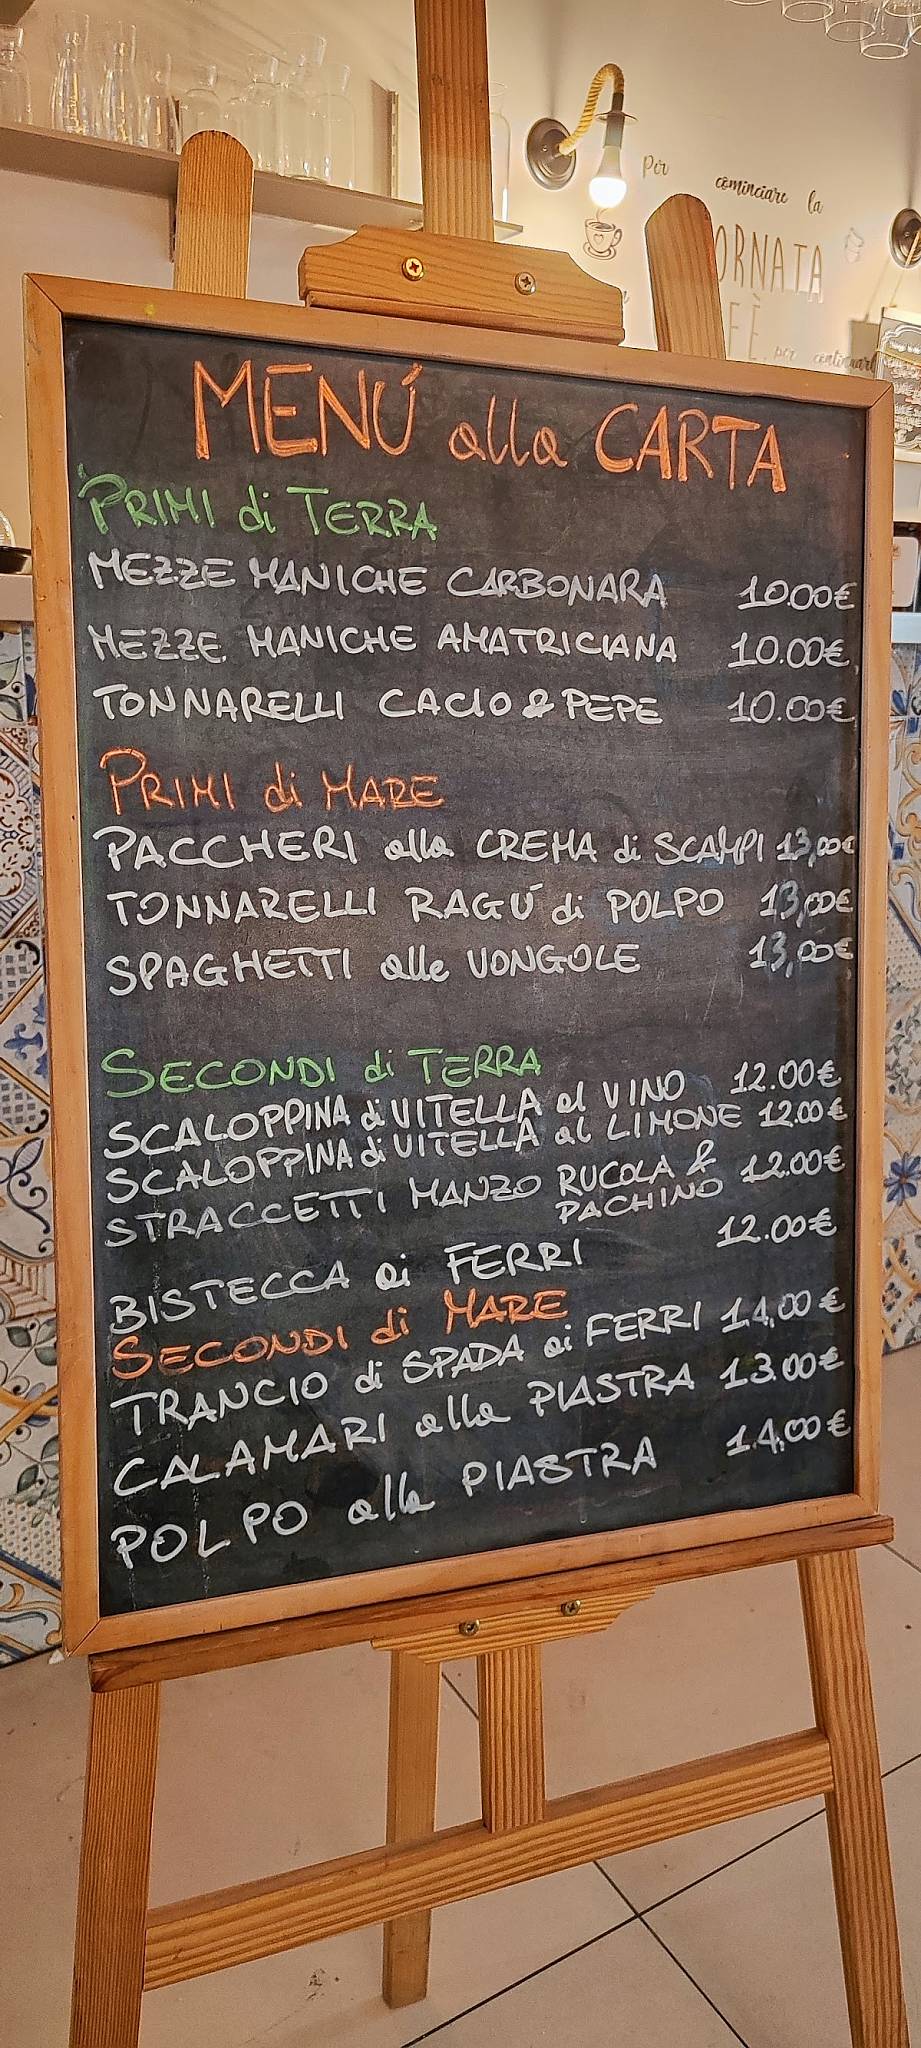 Per cominciare la
ORNATA
FÈ
per continuarl
MENÚ alla CARTA
PRIMI di TERRA
MEZZE MANICHE CARBONARA 10.00€
MEZZE MANICHE AMATRICIANA 10.00€
TONNARELLI CACIO & PEPE 10.00€
PRIMI di MARE
PACCHERI alla CREMA di SCAMPI 13,00€
TONNARELLI RAGÚ di POLPO 13,00€
SPAGHETTI alle VONGOLE 13,00€
SECONDI di TERRA
SCALOPPINA di VITELLA al VINO 12.00€
SCALOPPINA di VITELLA al LIMONE 12.00€
STRACCETTI MANZO RUCOLA & PACHINO 12.00€
BISTECCA ai FERRI 12.00€
SECONDI di MARE
TRANCIO di SPADA ai FERRI 14,00€
CALAMARI alla PIASTRA 13.00€
POLPO alla PIASTRA 14,00€